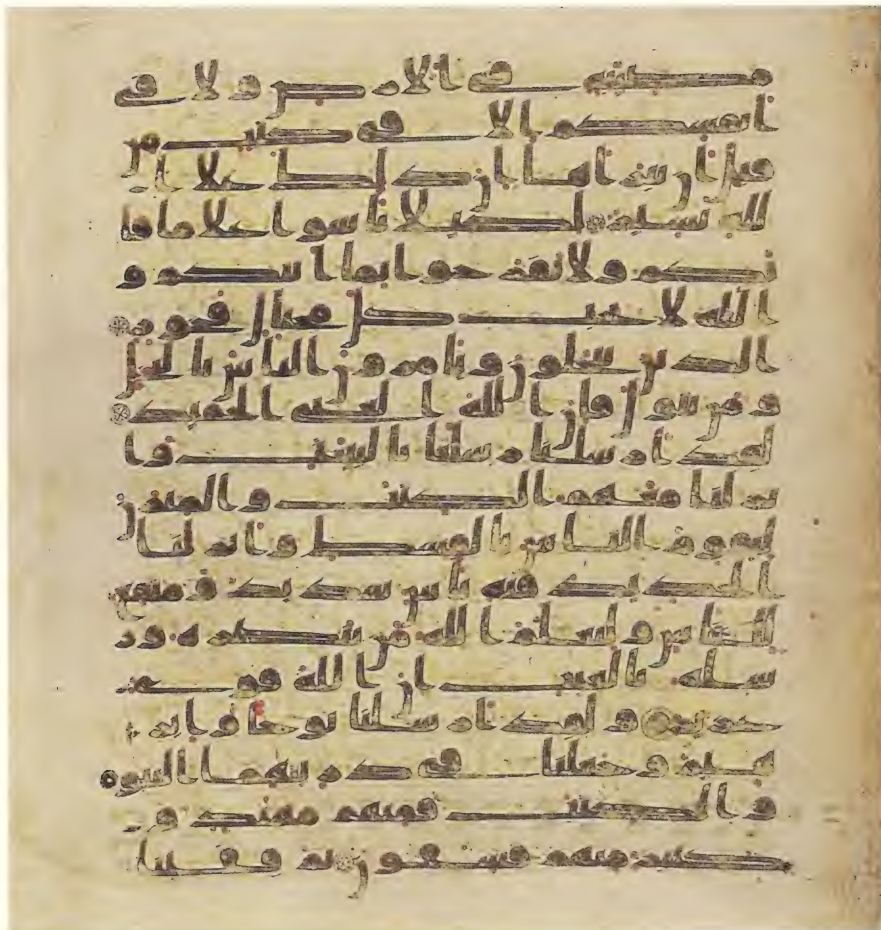 مصيبة في الارض ولا في
انفسكم الا في كتب من
قبل ان نبراها ان ذلك علا ا
لله يسير لكيلا تاسوا علا ما فا
تكم ولا تفرحوا بما اتيكم و
الله لا يحب كل مختال فخور
الذين يبخلون ويامرون الناس بالبخل
ومن يتول فان الله الغني الحميد
لقد ارسلنا رسلنا بالبينت وا
نزلنا معهم الكتب والميزن
ليقوم الناس بالقسط وانزلنا
الحديد فيه باس شديد ومنفع
للناس وليعلم الله من ينصره ور
سله بالغيب ان الله قوي
عزيز ولقد ارسلنا نوحا وابر
هيم وجعلنا في ذريتهما النبوة
والكتب فمنهم مهتد و
كثير منهم فسقون ثم قفينا